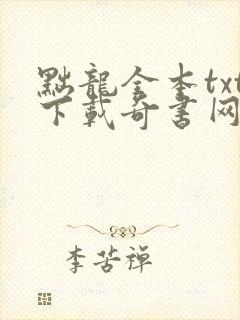 點龍全本txt
下載奇書网
李苦禅